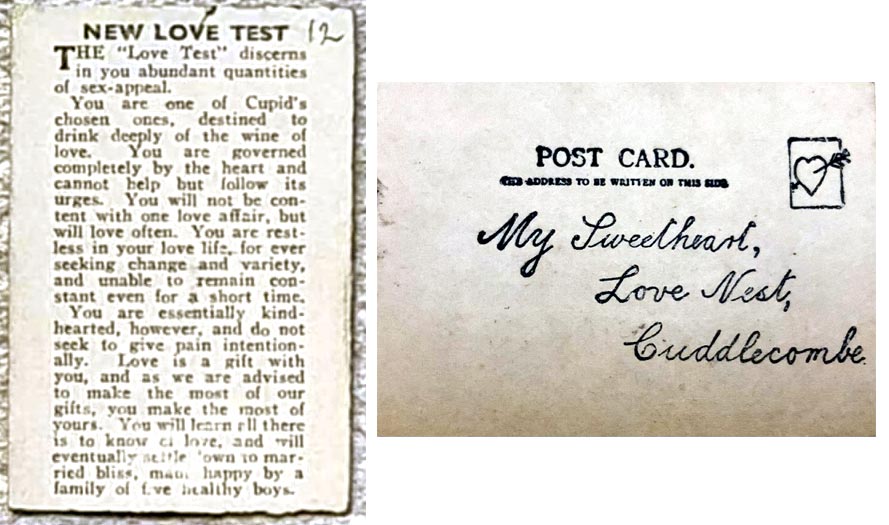 NEW LOVE TEST 12
THE "Love Test" discerns
in you abundant quantities
of sex-appeal.
You are one of Cupid's
chosen ones, destined to
drink deeply of the wine of
love. You are governed
completely by the heart and
cannot help but follow its
urges. You will not be con-
tent with one love affair, but
will love often. You are rest-
less in your love life, for ever
seeking change and variety,
and unable to remain con-
stant even for a short time.
You are essentially kind-
hearted, however, and do not
seek to give pain intention-
ally. Love is a gift with
you, and as we are advised
to make the most of our
gifts, you make the most of
yours. You will learn all there
is to know of love, and will
eventually settle down to mar-
ried bliss, made happy by a
family of five healthy boys.
POST CARD.
THE ADDRESS TO BE WRITTEN ON THIS SIDE
My Sweetheart,
Love Nest,
Cuddlecombe.